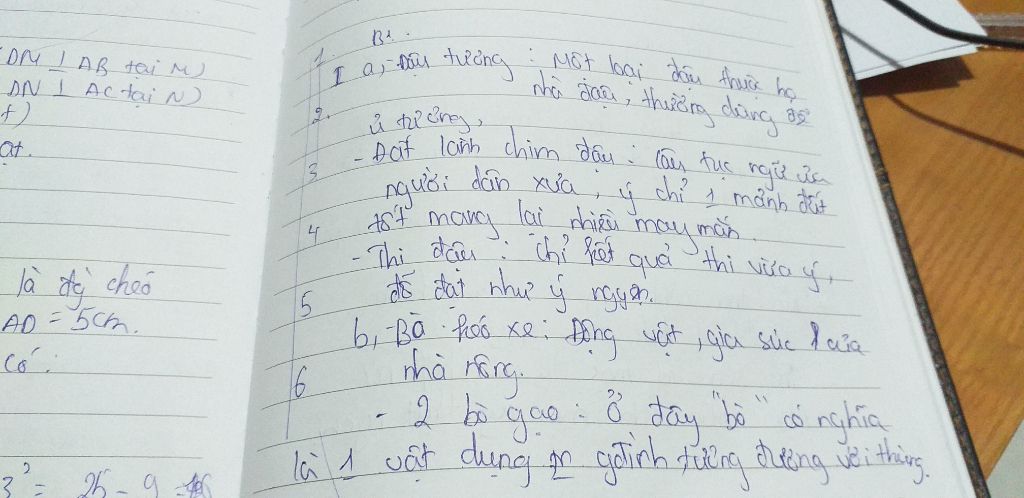 DM ⊥ AB tại M)
DN ⊥ AC tại N)
t)
ạt.
là đg chéo
AD = 5cm.
có:
3² = 25 - 9
B1.
1
I a, - Đậu tương : Một loại đậu thuộc họ
nhà đậu, thường dùng để
2.
ủ tương,
3 - Đất lành chim đậu : câu tục ngữ của
người dân xưa, ý chỉ 1 mảnh đất
4 tốt mang lại nhiều may mắn.
- Thi đậu : chỉ kết quả thi vừa ý,
5 đã đạt như ý nguyện.
b, - Bò kéo xe : Động vật, gia súc của
6 nhà nông.
- 2 bò gạo : Ở đây "bò" có nghĩa
là 1 vật dụng gđình tương đương với thùng.